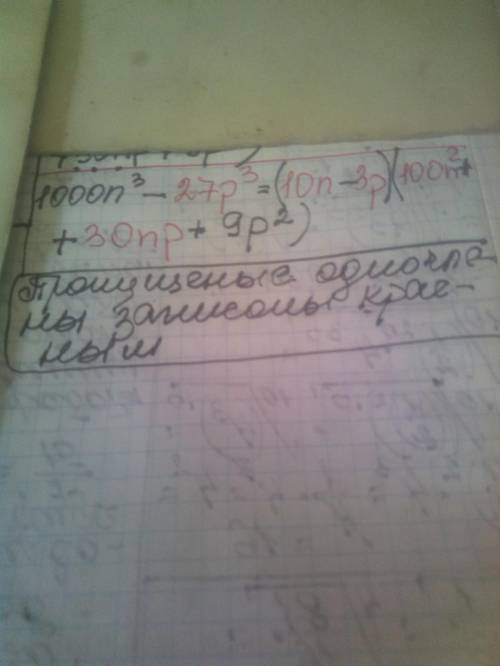 1000n³ - 27p³ = (10n - 3p)(100n² +
+ 30np + 9p²)
Прощищеные одночле-
ны записоны крас-
ным